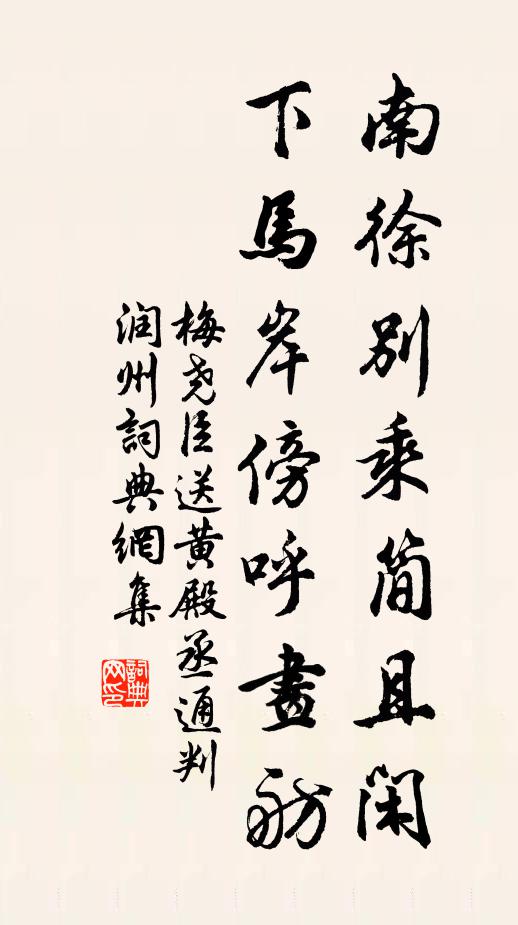 南徐别乘简且闲
下馬岸傍呼畫舫
梅尧臣送黄殿丞通判
润州詞典網集
詞典网印